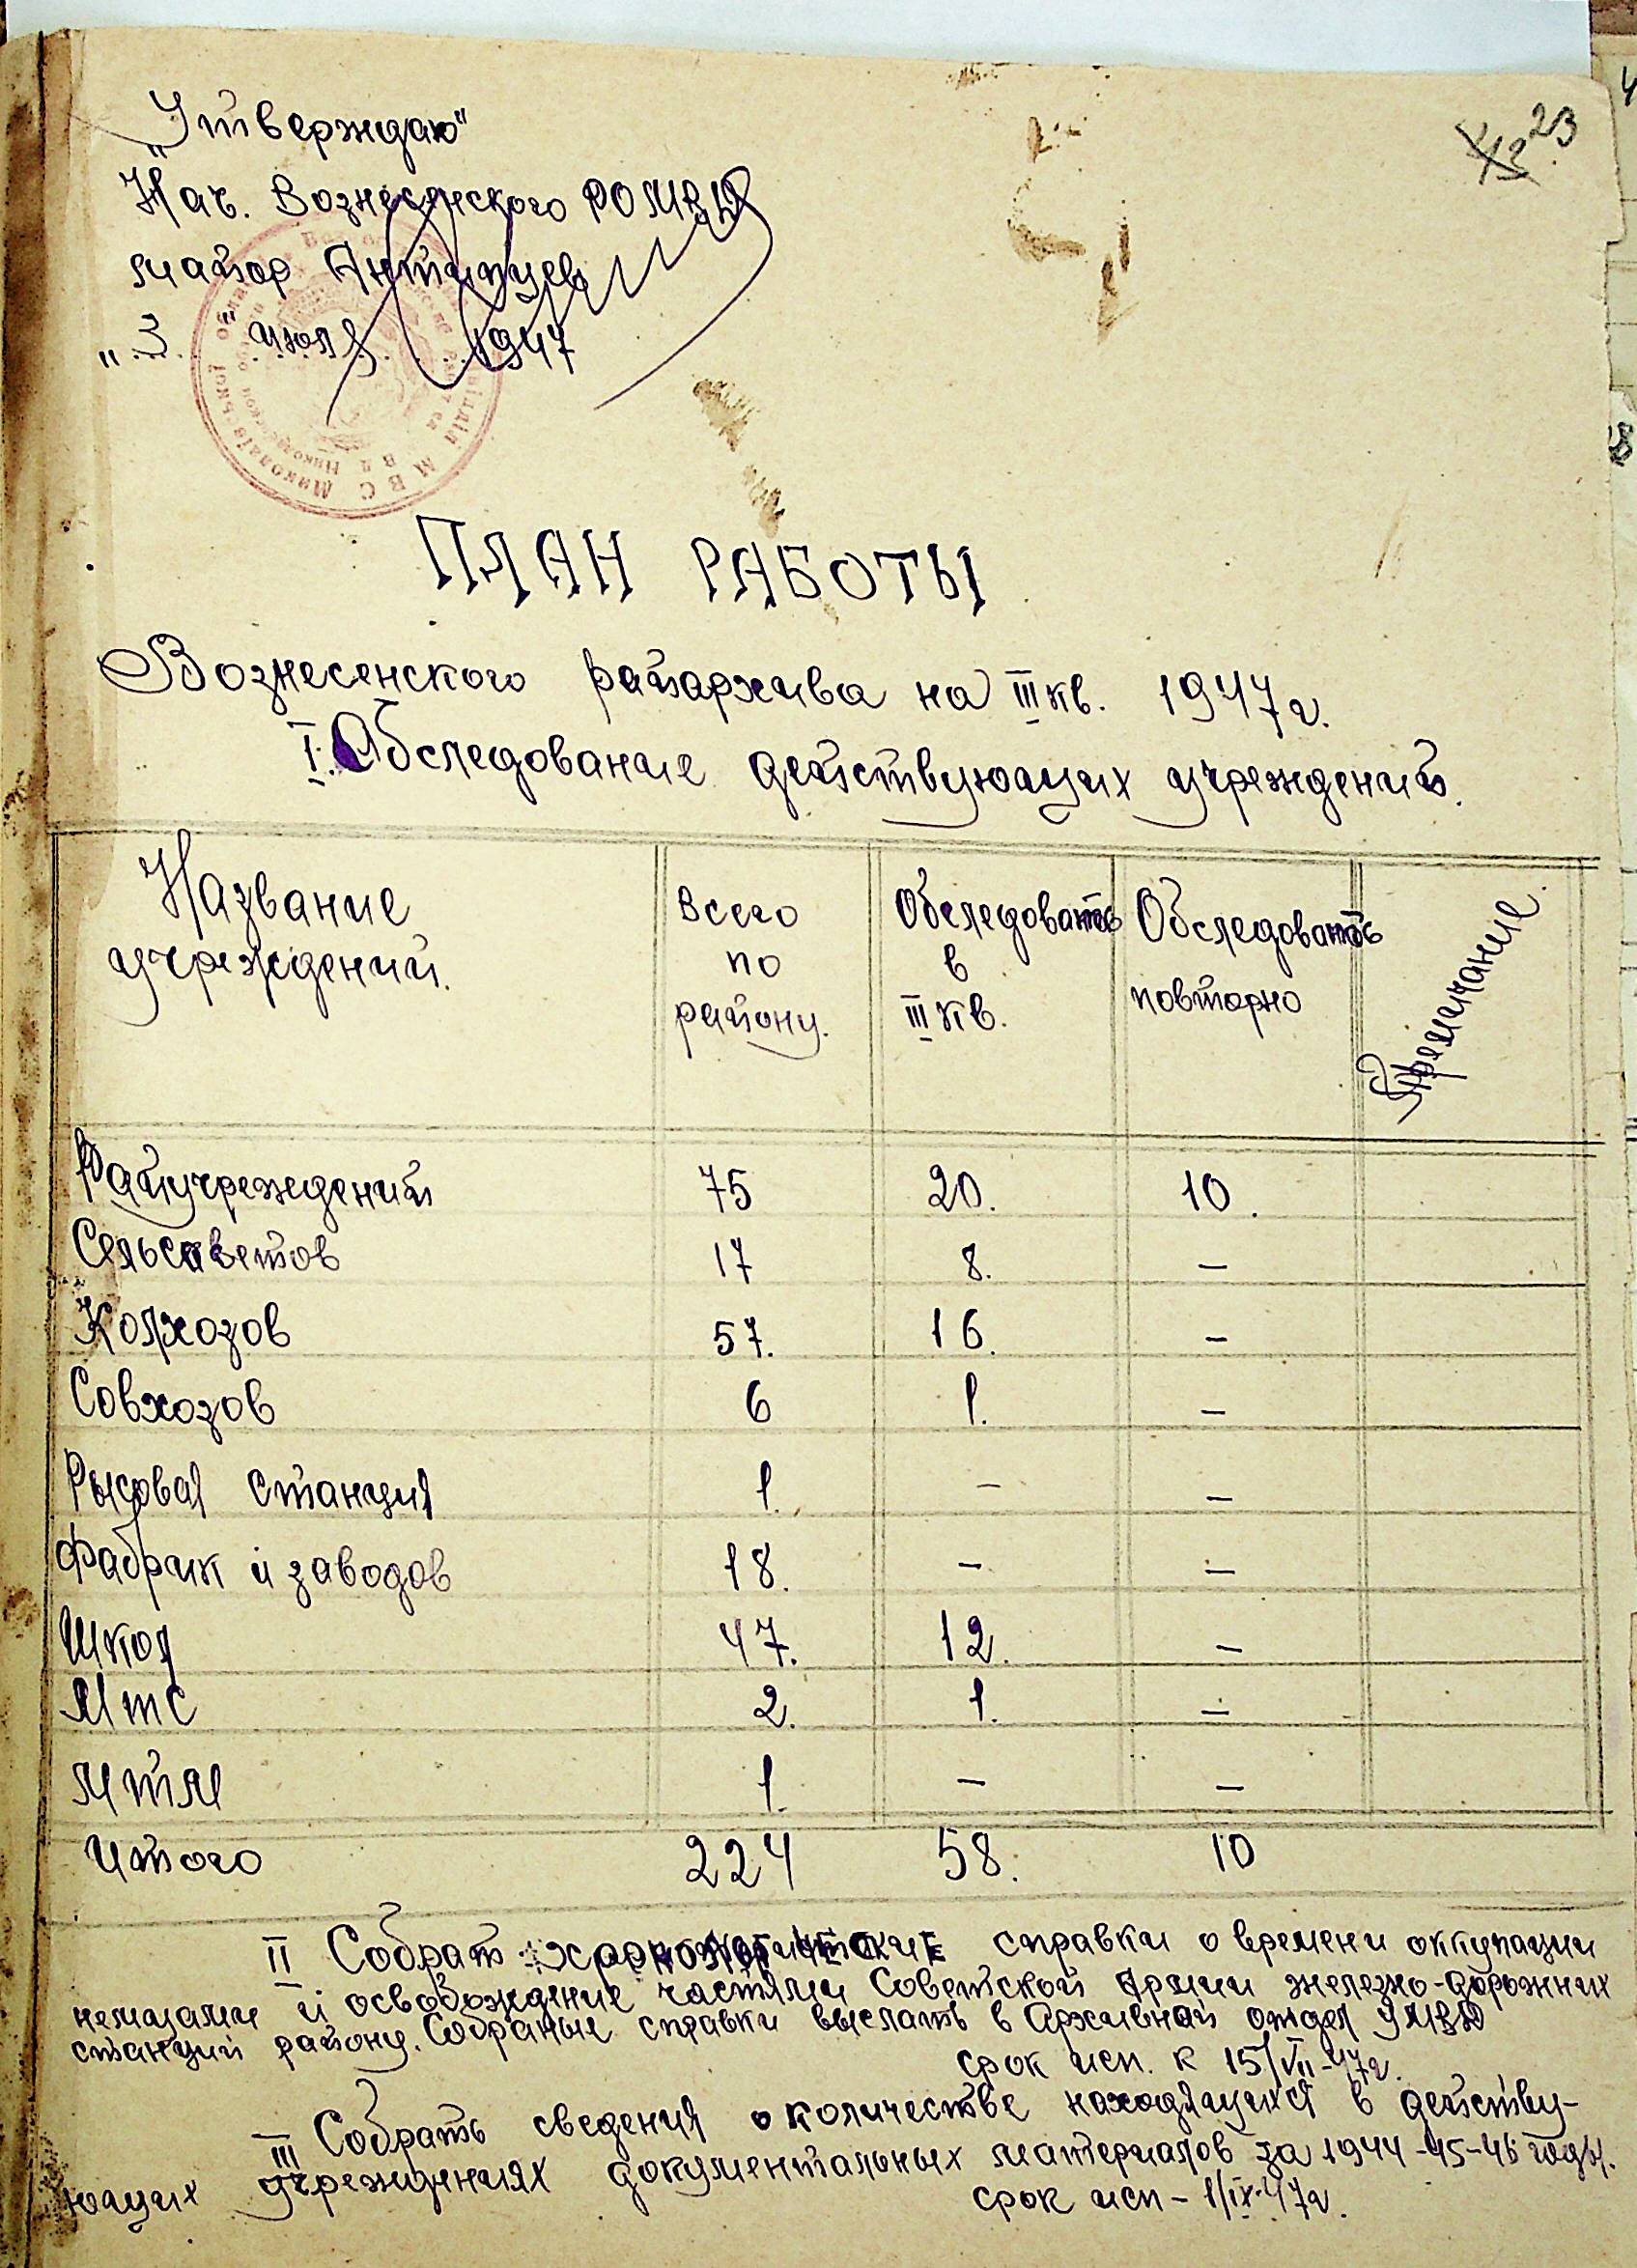 23
„Утверждаю"
Нач. Вознесенского РОМВД
майор Антипцев
„3" июля 1947
ПЛАН РАБОТЫ
Вознесенского райархива на III кв. 1947 г.
I. Обследование действующих учреждений.
Название учреждений. Всего по району. Обследовать в III кв. Обследовать повторно Примечание.
Райучреждений 75 20. 10.
Сельсоветов 17 8. –
Колхозов 57. 16. –
Совхозов 6 1. –
Рысовая станция 1. – –
Фабрик и заводов 18. – –
Школ 47. 12. –
МТС 2. 1. –
МТМ 1. – –
Итого 224 58. 10
II Собрат справки о времени оккупации
немцами и освобождение частями Советской Армии железно-дорожних
станций району. Собраные справки выслать в Архивный отдел УМВД
срок исп. к 15/VII-47г.
III Собрать сведения о количестве находящихся в действу-
ющих учреждениях документальных материалов за 1944-45-46 годы.
срок исп - 1/IX-47г.